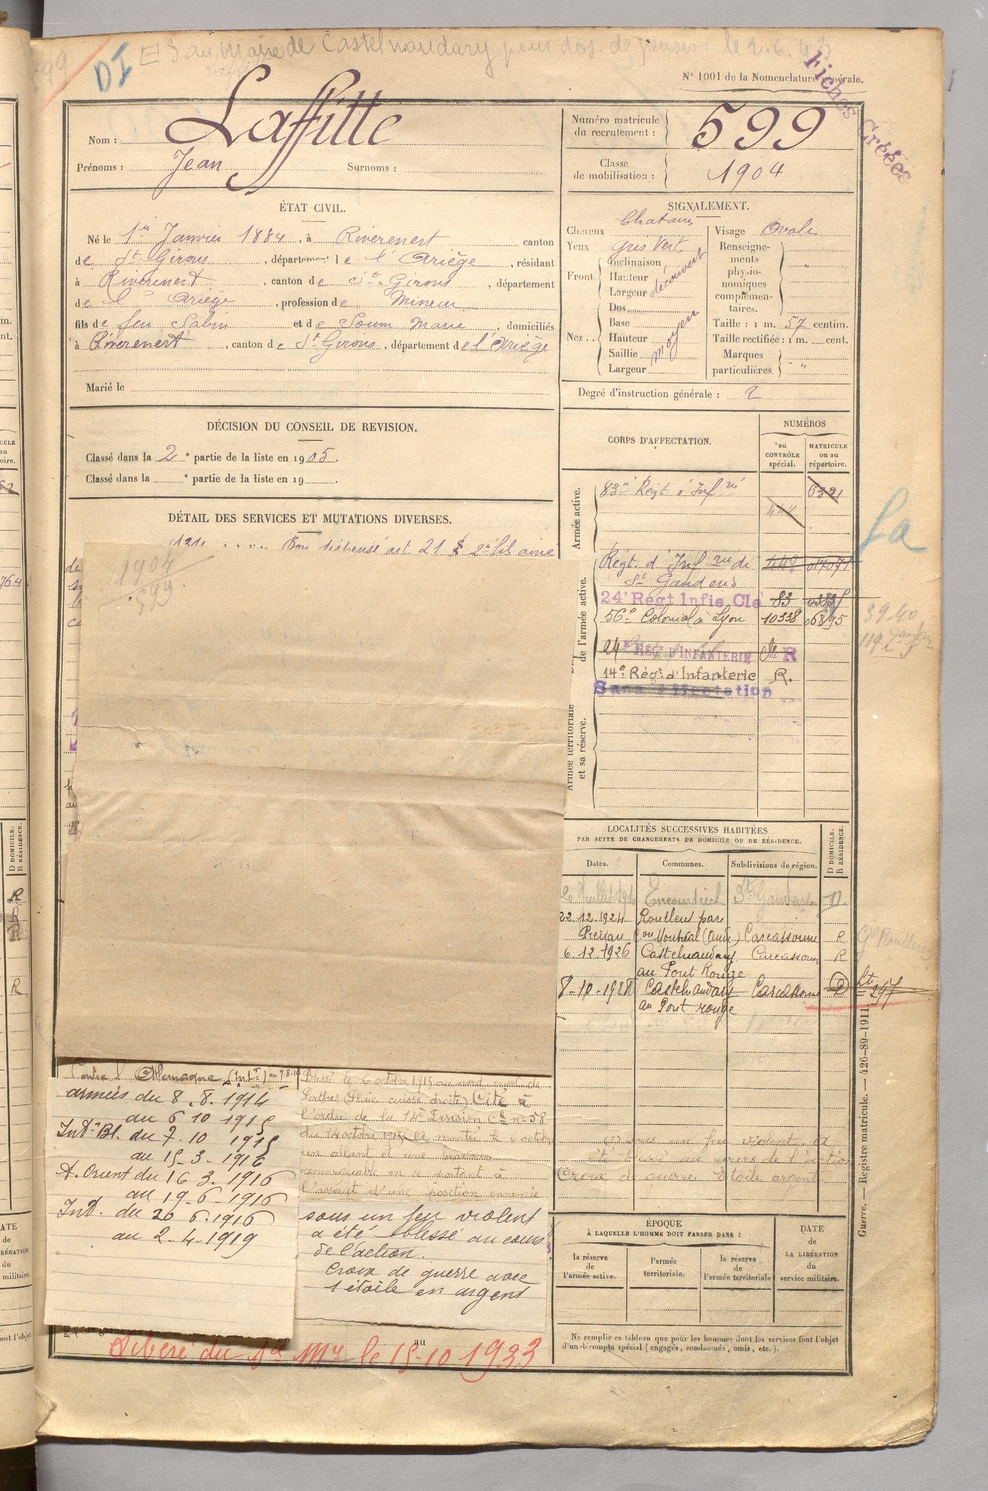 599
DI
E S au Maire de Castelnaudary pour dos. de pension le 2.6.42
N° 1001 de la Nomenclature générale.
Fiches Créées
Nom : Laffitte
Prénoms : Jean Surnoms :
Numéro matricule du recrutement : 599
Classe de mobilisation : 1904
ÉTAT CIVIL.
Né le 1er Janvier 1884, à Riverenert canton
de St Girons, département de l'Ariège, résidant
à Riverenert, canton de St Girons, département
de l'Ariège, profession de Mineur
fils de feu Sabin et de Soum Marie, domiciliés
à Riverenert, canton de St Girons, département de l'Ariège
Marié le
SIGNALEMENT.
Cheveux Chatain
Yeux gris Vert
Front Inclinaison Hauteur Largeur découvert
Nez Dos Base Hauteur Saillie Largeur moyen
Visage Ovale
Renseignements physionomiques complémentaires. "
Taille : 1 m. 57 centim.
Taille rectifiée : 1 m. cent.
Marques particulières. "
Degré d'instruction générale : 2
DÉCISION DU CONSEIL DE REVISION.
Classé dans la 2e partie de la liste en 1905.
Classé dans la e partie de la liste en 19
DÉTAIL DES SERVICES ET MUTATIONS DIVERSES.
dispensé art 21 § 2 fils aîné
1904
599
CORPS D'AFFECTATION.
NUMÉROS
au CONTRÔLE spécial.
MATRICULE ou au répertoire.
Armée active.
83e Régt d'Infrie 6321
de l'armée active.
Régt. d'Infrie de 448
St Gaudens
24e Régt Infie Cle 83
56e Colonial à Lyon 10338 06895
24e RÉGT D'INFANTERIE Cle R
14e Régt d'Infanterie R.
Sans affectation
Armée territoriale et sa réserve.
LOCALITÉS SUCCESSIVES HABITÉES
PAR SUITE DE CHANGEMENTS DE DOMICILE OU DE RÉSIDENCE.
Dates. Communes. Subdivisions de région. D DOMICILE. R RÉSIDENCE.
Encourtiech St Gaudens D
22.12.1924 Roullens par
Montréal (Aude) Carcassonne R
6.12.1926 Castelnaudary Carcassonne R
au Pont Rouge
8-10-1928 Castelnaudary Carcassonne D
au Pont rouge
Guerre. — Registre matricule. — 426-89-1911.
Contre l'Allemagne (Intr)
armées du 8.8.1914
au 6 10 1915
Intr Bl. du 7.10 1915
au 15-3-1916
A. Orient du 16 3.1916
au 19-6-1916
Intr. du 20 6.1916
au 2-4-1919
Blessé le 6 octobre 1915 au nord
Perthes (Plaie cuisse droite) Cité à
l'ordre de la Division n° 58
du 14 octobre 1915 A montré le 6 octobre
un allant et une bravoure
remarquable en se portant à
l'assaut d'une position ennemie
sous un feu violent
a été blessé au cours
de l'action.
Croix de guerre avec
1 étoile en argent
sous un feu violent. A
été blessé au cours de l'action
Croix de guerre. Etoile argent
ÉPOQUE
À LAQUELLE L'HOMME DOIT PASSER DANS :
la réserve de l'armée active.
l'armée territoriale.
la réserve de l'armée territoriale
DATE DE LA LIBÉRATION du service militaire.
Ne remplir ce tableau que pour les hommes dont les services font l'objet
d'un décompte spécial (engagés, condamnés, omis, etc.).
au
Libéré du Sce Mre le 15-10 1933